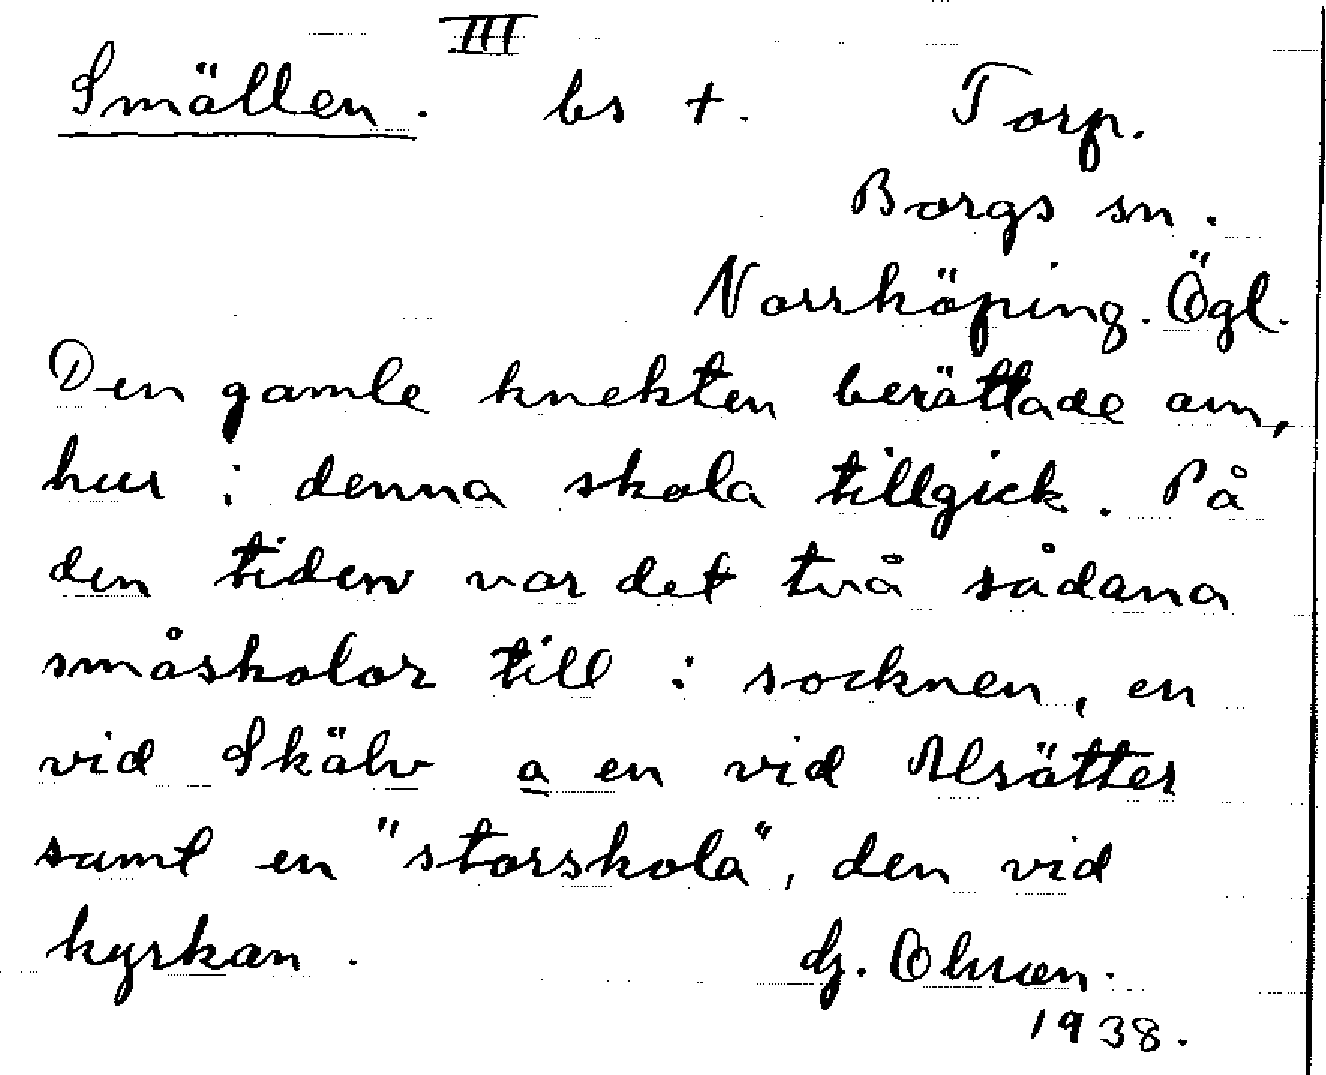 III
Smällen. bs +. Torp.
Borgs sn.
Norrköping. Ögl.
Den gamle knekten berättade om,
hur i denna skola tillgick. På
den tiden var det två sådana
småskolor till i socknen, en
vid Skälv a en vid Alsätter
samt en "storskola", den vid
kyrkan. G. Ohrson.
1938.